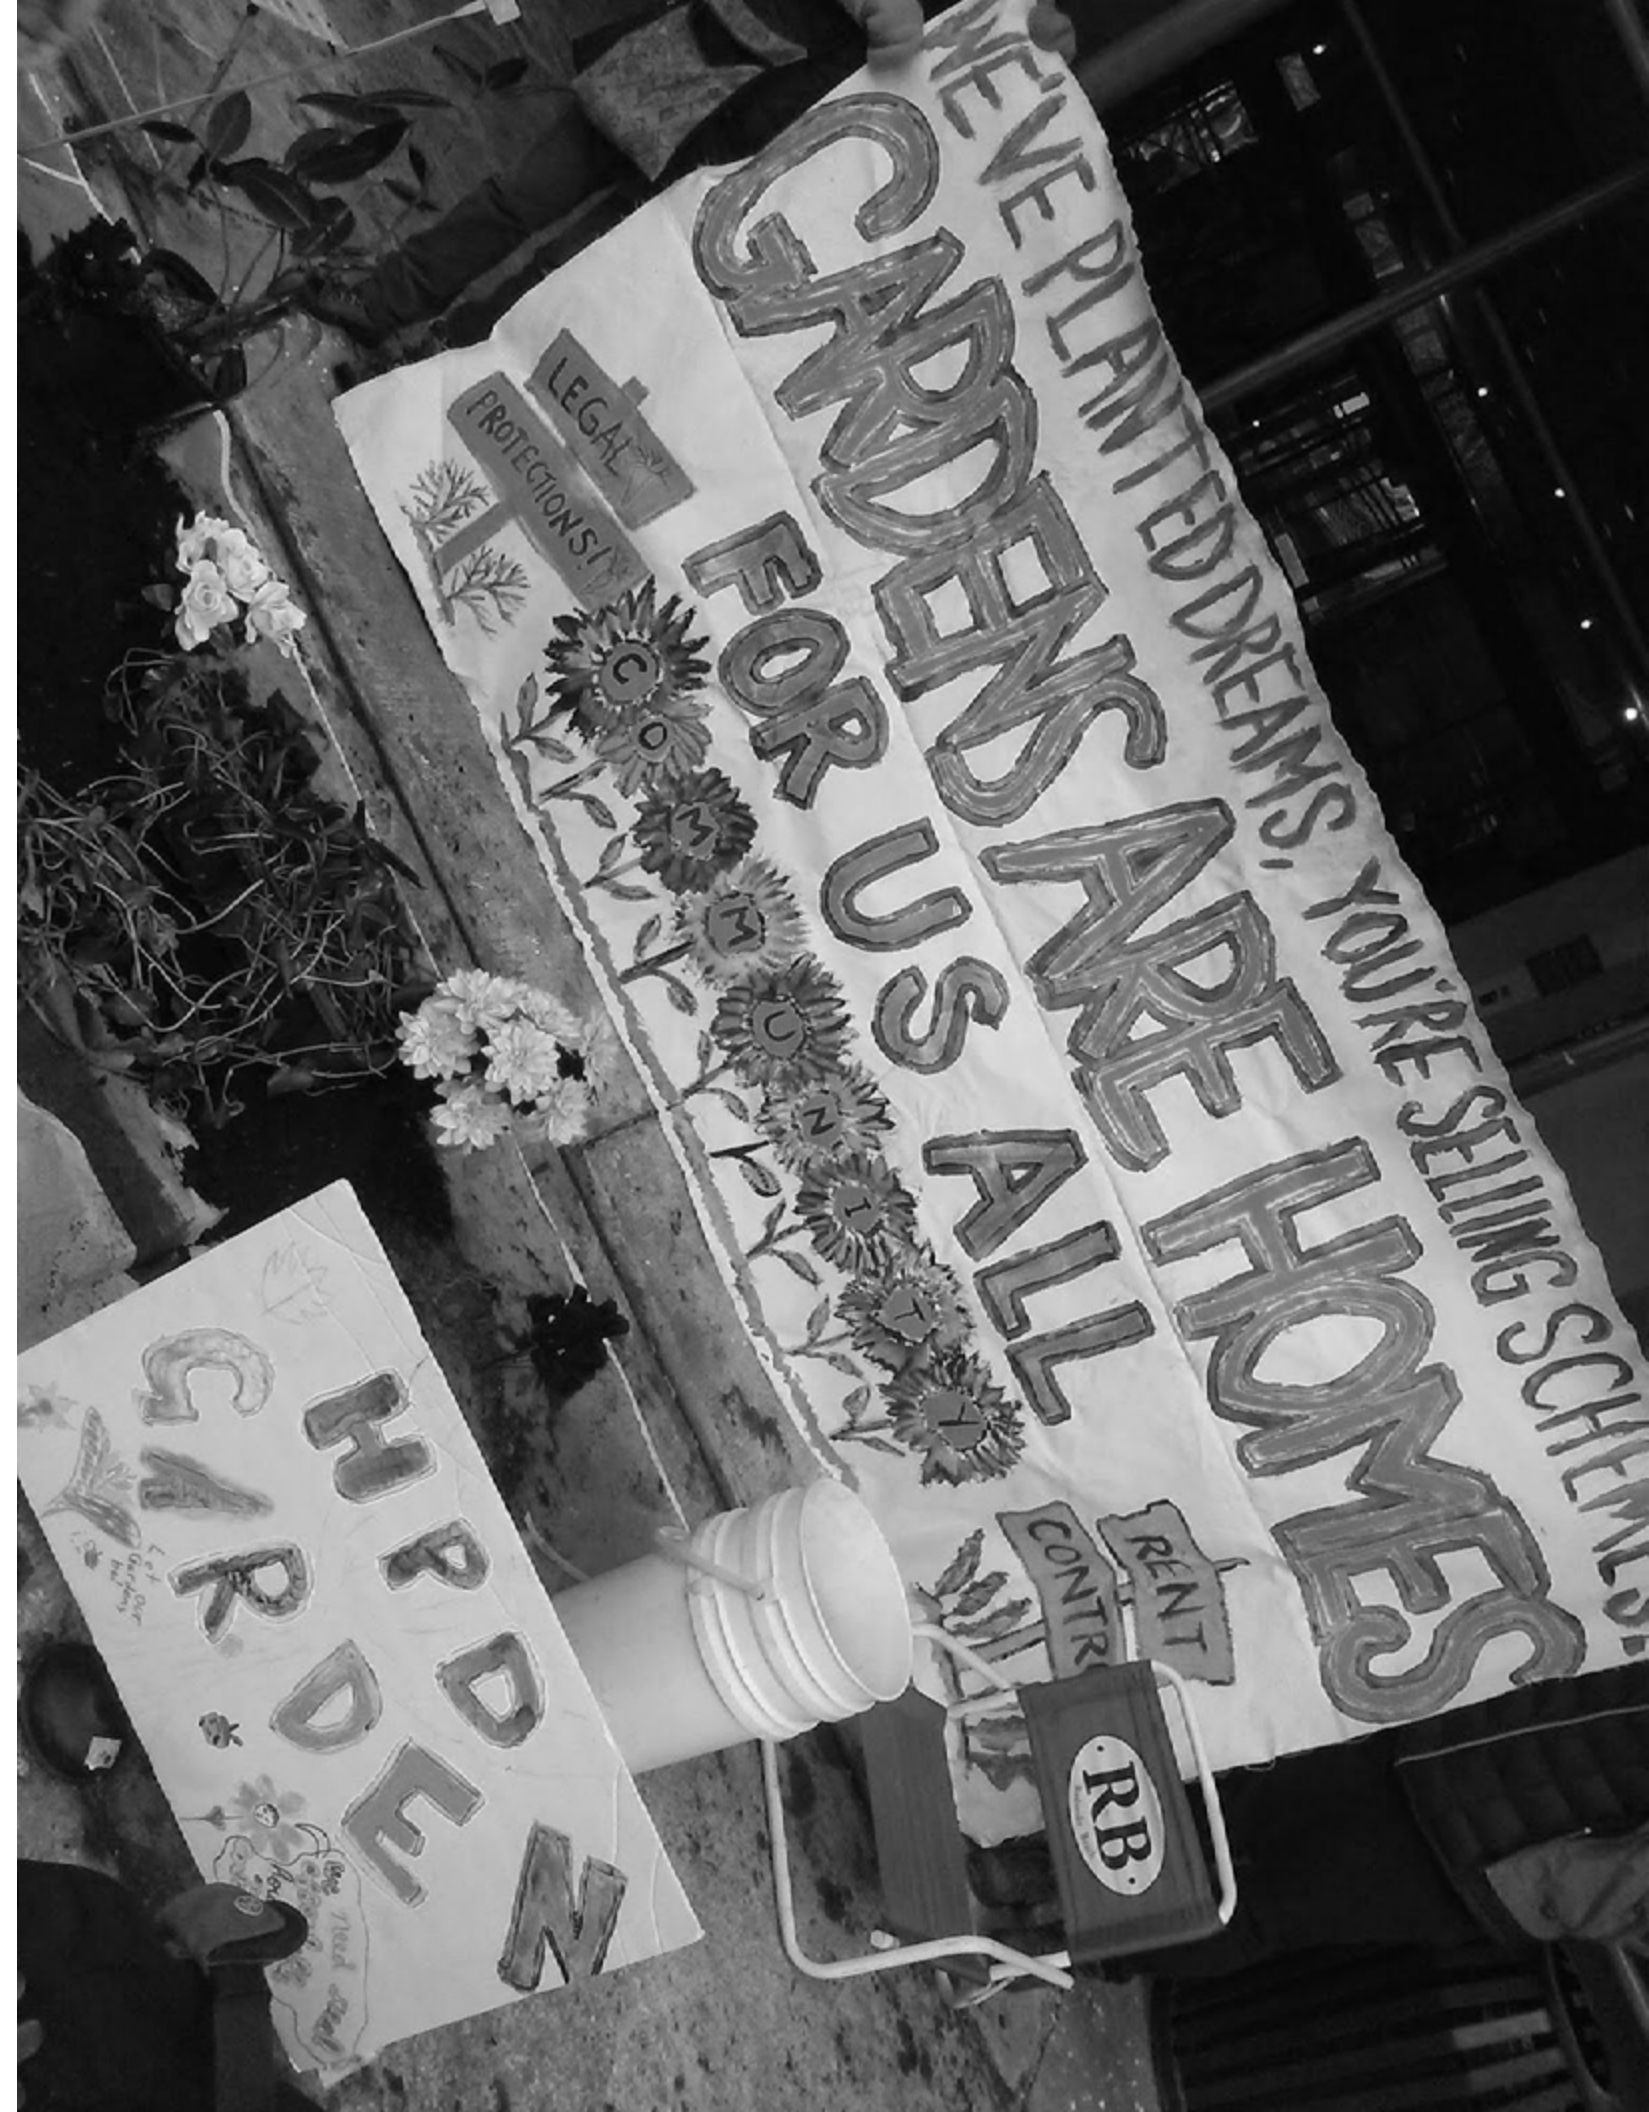 WE'VE PLANTED DREAMS, YOU'RE SELLING SCHEMES!
GARDENS ARE HOMES
FOR US ALL
LEGAL
PROTECTIONS!
COMMUNITY
RENT
CONTRO
RB
HPD
GARDEN
Let our
Gardens
live
need